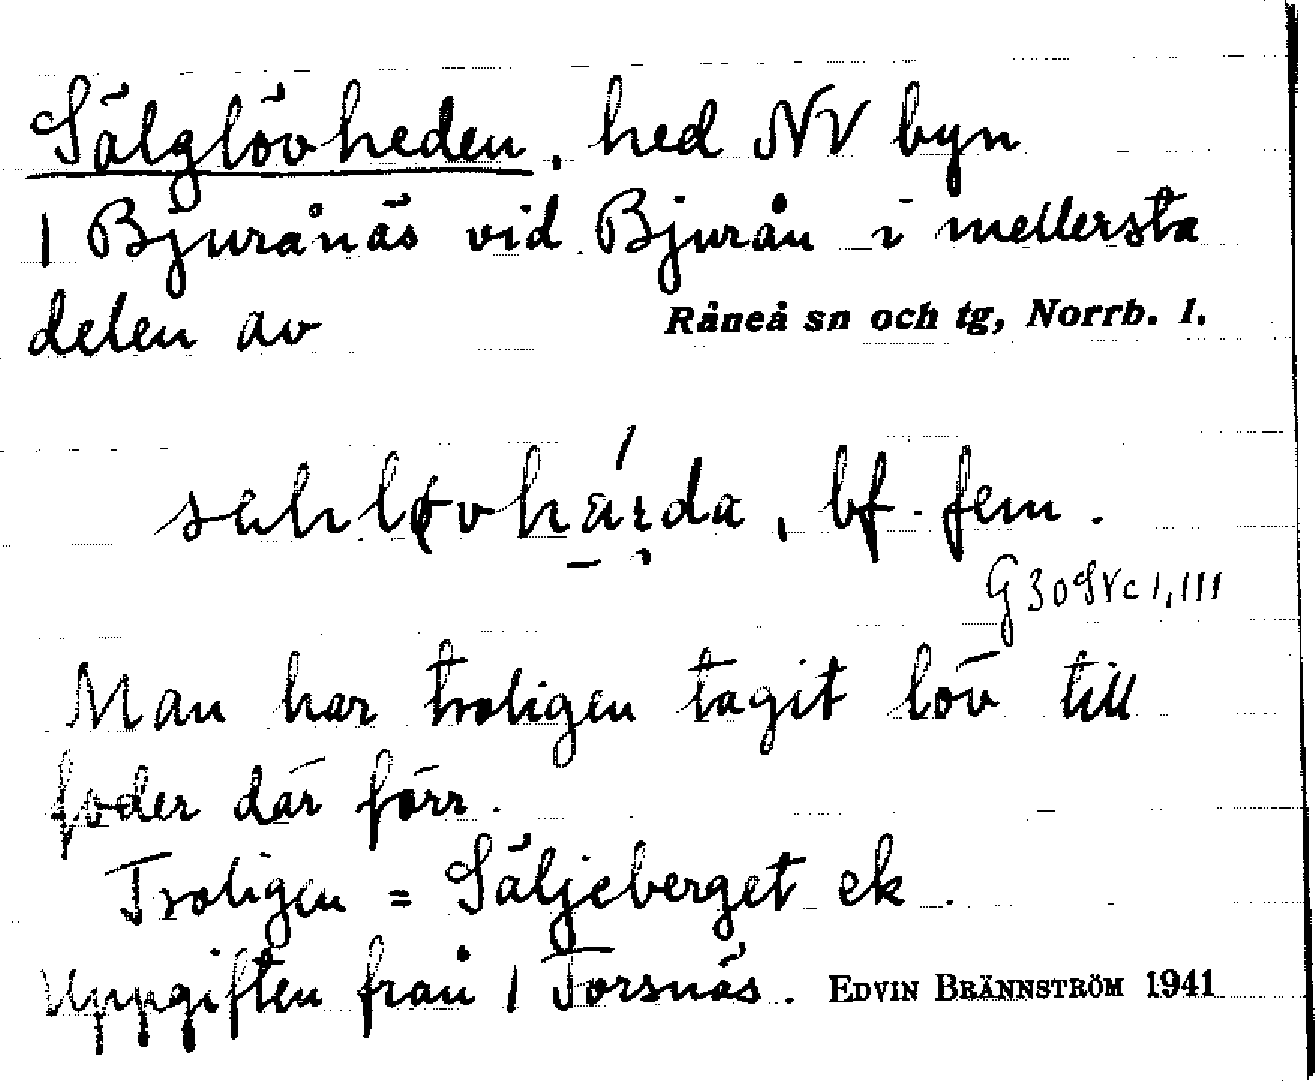 Sälglövheden, hed NV byn
1 Bjurånäs vid Bjurån i mellersta
delen av Råneå sn och tg, Norrb. l.
bf. fem.
Man har troligen tagit löv till
foder där förr.
Troligen = Säljeberget ek.
Uppgiften från 1 Torsnäs. EDVIN BRÄNNSTRÖM 1941